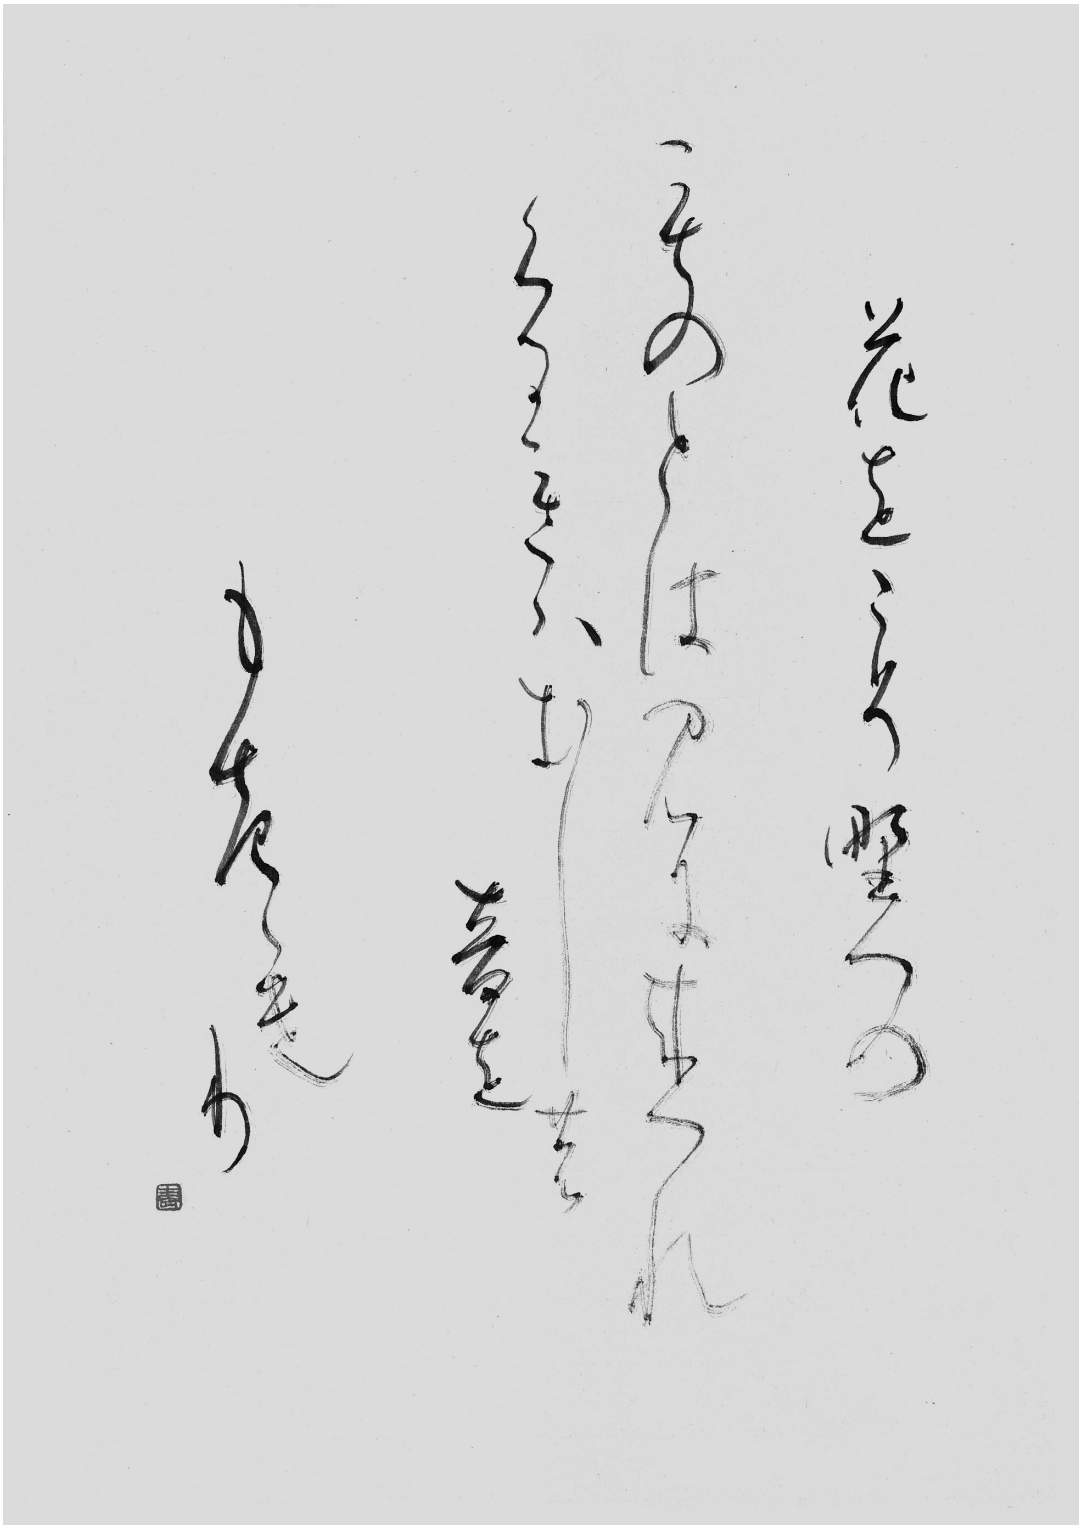 花をこそ野への
ものとは見に来つれ
くるれハむしの
音を
もきゝけり